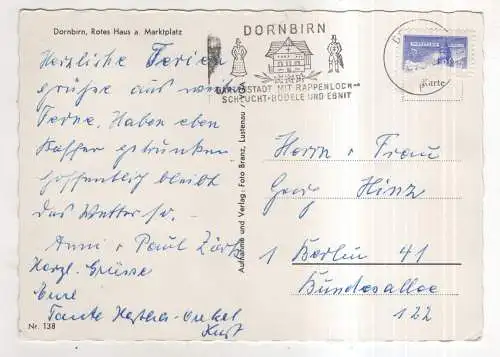 Dornbirn, Rotes Haus a. Marktplatz
DORNBIRN
GARTENSTADT MIT RAPPENLOCH-
SCHLUCHT-BÖDELE UND EBNIT
Karte
Herzliche Ferien
grüße aus weiter
Ferne. Haben eben
Kaffee getrunken
hoffentlich bleibt
das Wetter so.
Anni u Paul
Herzl. Grüsse
Eure
Tante Onkel
Aufnahme und Verlag: Foto Branz, Lustenau
Nr. 138
Herrn u Frau
Georg Hinz
1 Berlin 41
Bundesallee
122